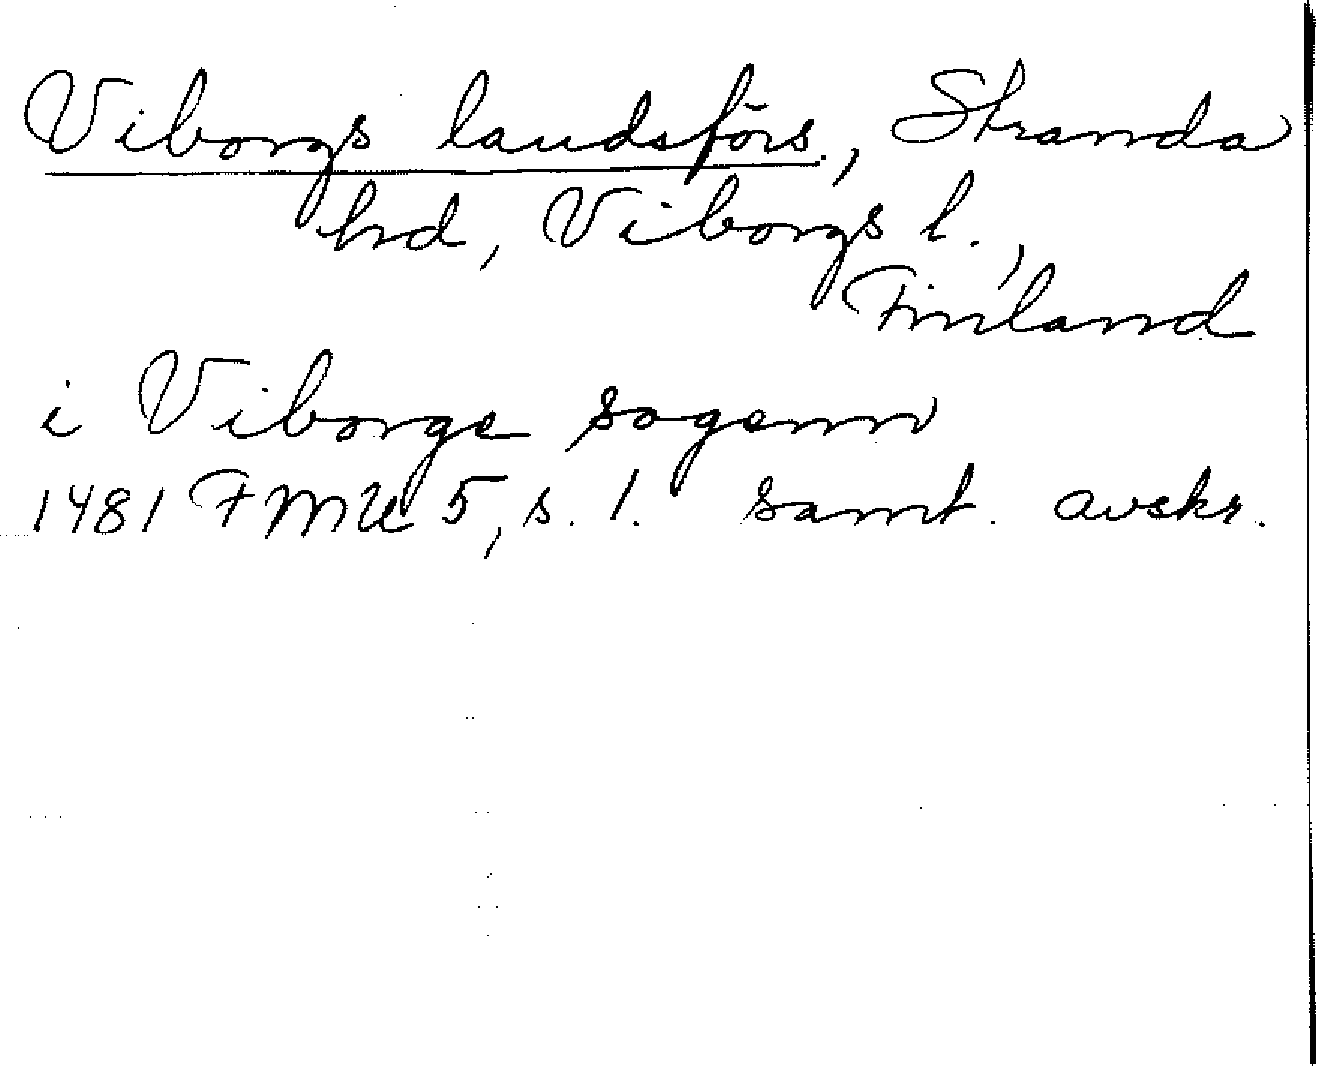 Viborgs landsförs., Stranda
hrd, Viborgs l.,
Finland
i Viborge sogenn
1481 FMU 5, s. 1. samt. avskr.